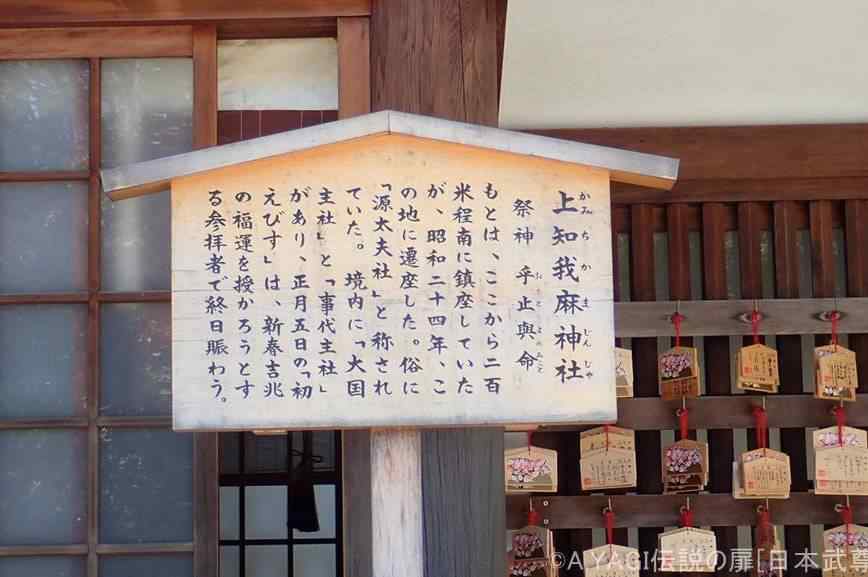 上知我麻神社
かみちかまじんじゃ
祭神 乎止與命
おとよのみこと
もとは、ここから二百
米程南に鎮座していた
が、昭和二十四年、こ
の地に遷座した。俗に
「源太夫社」と称され
ていた。 境内に「大国
主社」と「事代主社」
があり、正月五日の「初
えびす」は、新春吉兆
の福運を授かろうとす
る参拝者で終日賑わう。
©A.YAGI伝説の扉[日本武尊